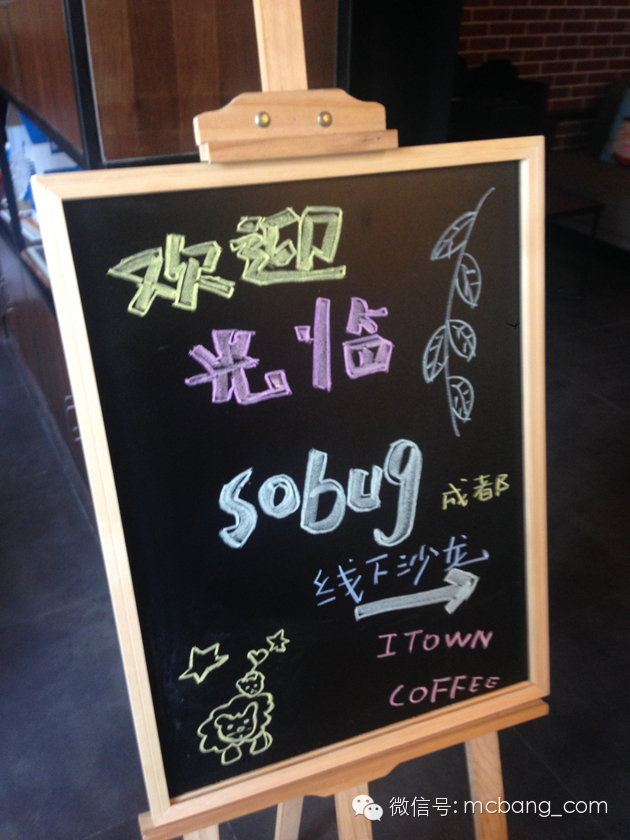 欢迎
光临
sobug 成都
线下沙龙
ITOWN
COFFEE
微信号: mcbang_com